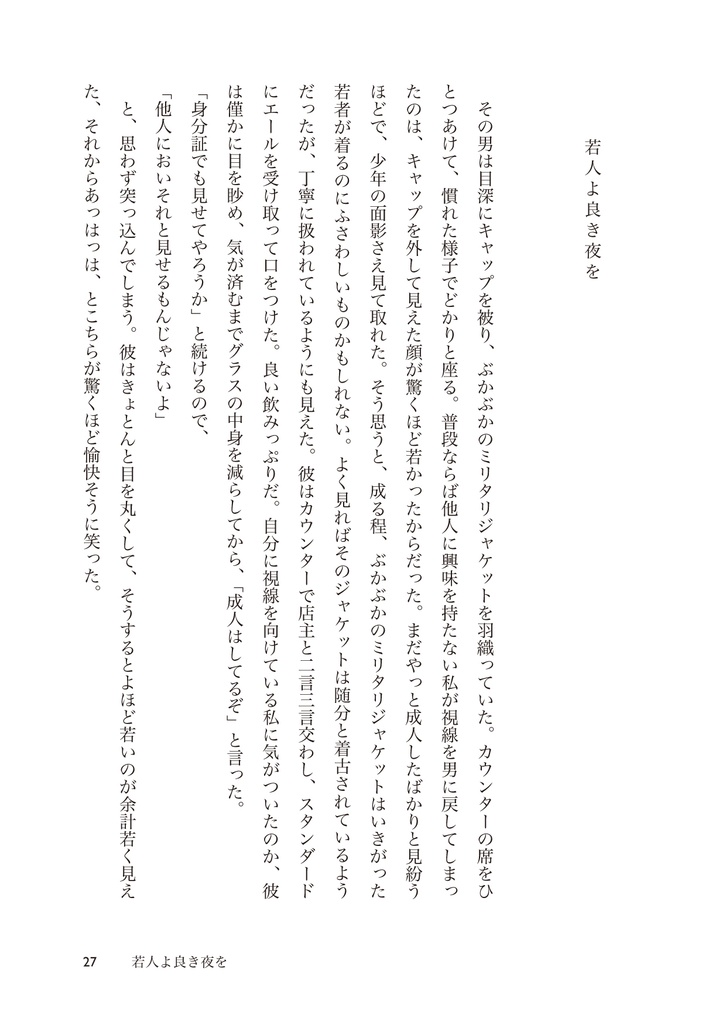 若人よ良き夜を
その男は目深にキャップを被り、ぶかぶかのミリタリジャケットを羽織っていた。カウンターの席をひ
とつあけて、慣れた様子でどかりと座る。普段ならば他人に興味を持たない私が視線を男に戻してしまっ
たのは、キャップを外して見えた顔が驚くほど若かったからだった。まだやっと成人したばかりと見紛う
ほどで、少年の面影さえ見て取れた。そう思うと、成る程、ぶかぶかのミリタリジャケットはいきがった
若者が着るのにふさわしいものかもしれない。よく見ればそのジャケットは随分と着古されているよう
だったが、丁寧に扱われているようにも見えた。彼はカウンターで店主と二言三言交わし、スタンダード
にエールを受け取って口をつけた。良い飲みっぷりだ。自分に視線を向けている私に気がついたのか、彼
は僅かに目を眇め、気が済むまでグラスの中身を減らしてから、「成人はしてるぞ」と言った。
「身分証でも見せてやろうか」と続けるので、
「他人においそれと見せるもんじゃないよ」
と、思わず突っ込んでしまう。彼はきょとんと目を丸くして、そうするとよほど若いのが余計若く見え
た、それからあっはっは、とこちらが驚くほど愉快そうに笑った。
27 若人よ良き夜を